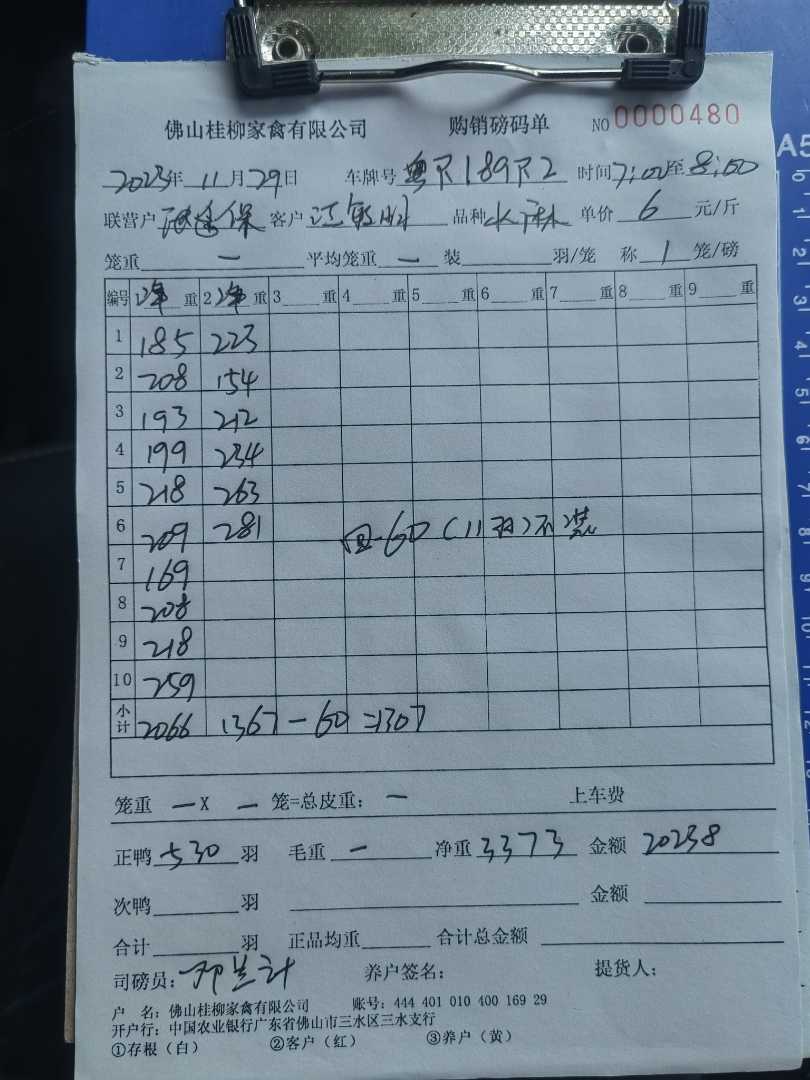 佛山桂柳家禽有限公司 购销磅码单 NO 0000480
2023年 11月29日 车牌号 粤R189R2 时间7:00至8:00
联营户 保 客户 江 明 品种 水麻 单价 6 元/斤
笼重 — 平均笼重 — 装 羽/笼 称 1 笼/磅
编号 净 重 2 净 重 3 重 4 重 5 重 6 重 7 重 8 重 9 重
1 185 223
2 208 154
3 193 212
4 199 234
5 218 263
6 209 281 回-60(11羽)不装
7 169
8 208
9 218
10 259
小计 2066 1367-60=1307
笼重 — X — 笼=总皮重: — 上车费
正鸭 530 羽 毛重 — 净重 3373 金额 20238
次鸭 羽 金额
合计 羽 正品均重 合计总金额
司磅员: 养户签名: 提货人:
户 名: 佛山桂柳家禽有限公司 账号: 444 401 010 400 169 29
开户行: 中国农业银行广东省佛山市三水区三水支行
①存根(白) ②客户(红) ③养户(黄)
A5
0
1
2
3
4
5
6
7
8
9
10
11
12